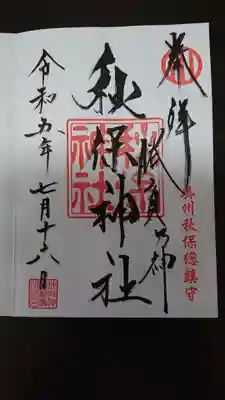 奉拝
勝負の神
奥州秋保総鎮守
秋保神社
令和五年七月十八日